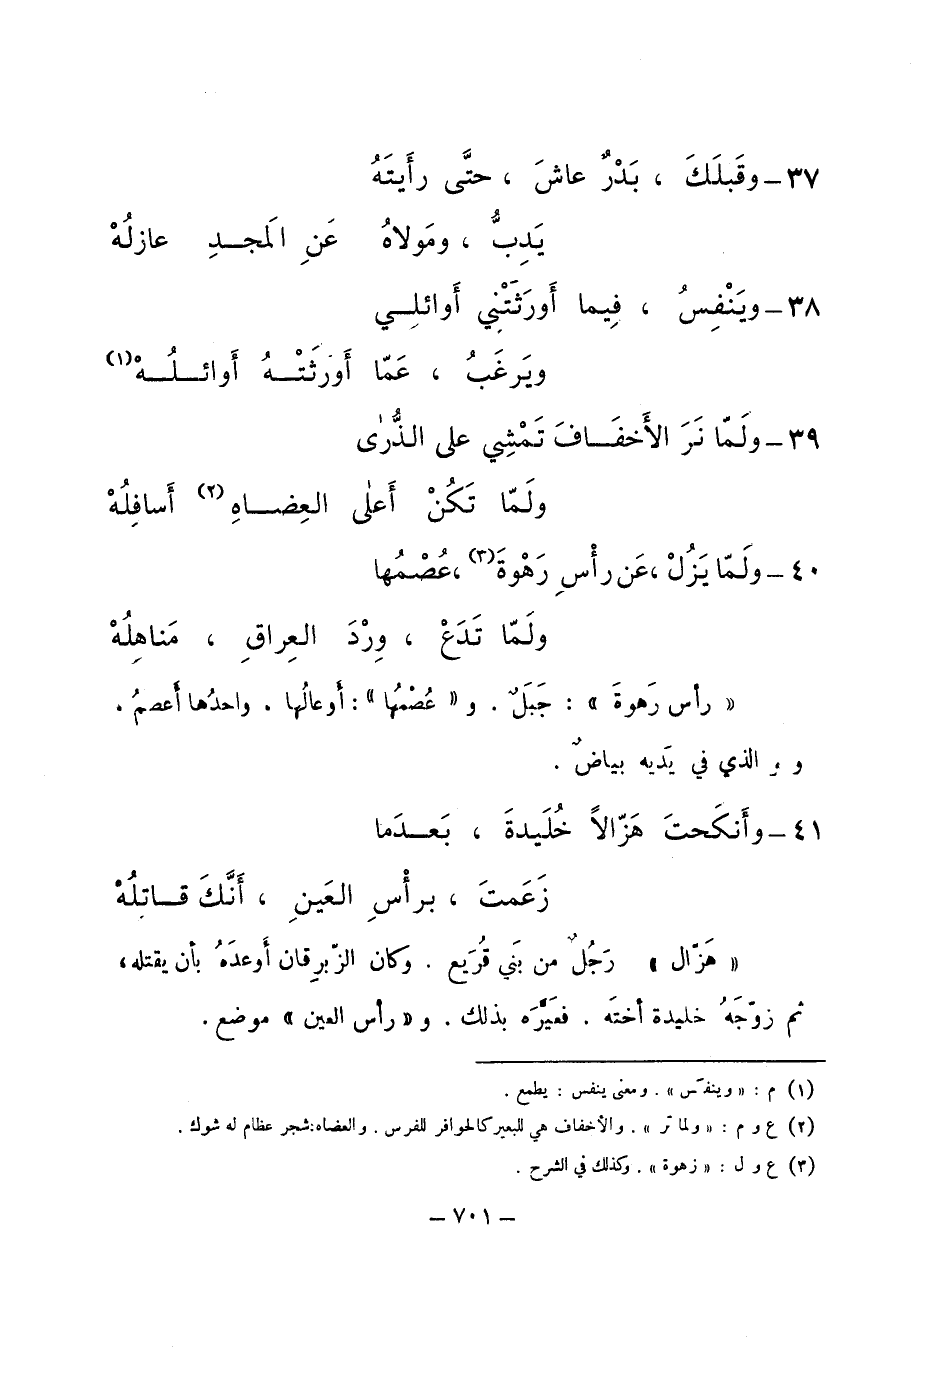 ٣٧ــ وقَبلَكَ ، بَدْرٌ عاشَ ، حتَّى رأَيتَهُ
يَدِبُّ ، ومَولاهُ عَنِ المَجــدِ عازلُهْ
٣٨ــ ويَنْفِسُ ، فِيما أَورَثَتْنِي أَوائلِــي
ويَرغَبُ ، عَمّا أَورَثَتْــهُ أَوائــلُــهْ(١)
٣٩ــ ولَمّا نَرَ الأَخفَــافَ تَمْشِي على الذُّرٰى
ولَمّا تَكُنْ أَعلٰى العِضــاهِ(٢) أَسافِلُهْ
٤٠ــ ولَمّا يَزُلْ ،عَن رأْسِ رَهْوةَ(٣) ،عُصْمُها
ولَمّا تَدَعْ ، وِرْدَ العِراقِ ، مَناهِلُهْ
« رأس رَهوةَ » : جَبَلٌ . و « عُصْمُها » : أَوعالُها . واحدُها أَعصمُ .
و الذي في يَديه بياضٌ .
٤١ــ وأَنكَحتَ هَزّالاً خُلَيدةَ ، بَعــدَما
زَعَمتَ ، برأْسِ العَينِ ، أَنَّكَ قــاتلُهْ
« هَزّال » رَجُلٌ من بَني قُرَيع . وكان الزّبرِقان أَوعدَهُ بأن يقتله ،
ثم زوّجَهُ خليدة أختَه . فعَيَّرَه بذلك . و « رأس العين » موضع .
(١) م : « وينفَس » . ومعنى ينفس : يطمع .
(٢) ع و م : « ولما تر » . والأخفاف هي للبعير كالحوافر للفرس . والعضاه : شجر عظام له شوك .
(٣) ع و ل : « زهوة » . وكذلك في الشرح .
ــ ٧٠١ ــ